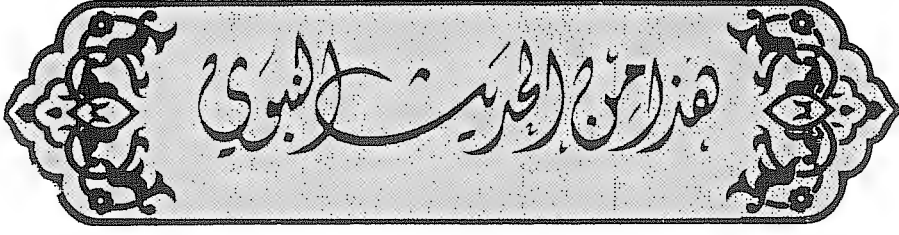 هذا من الحديث النبوي